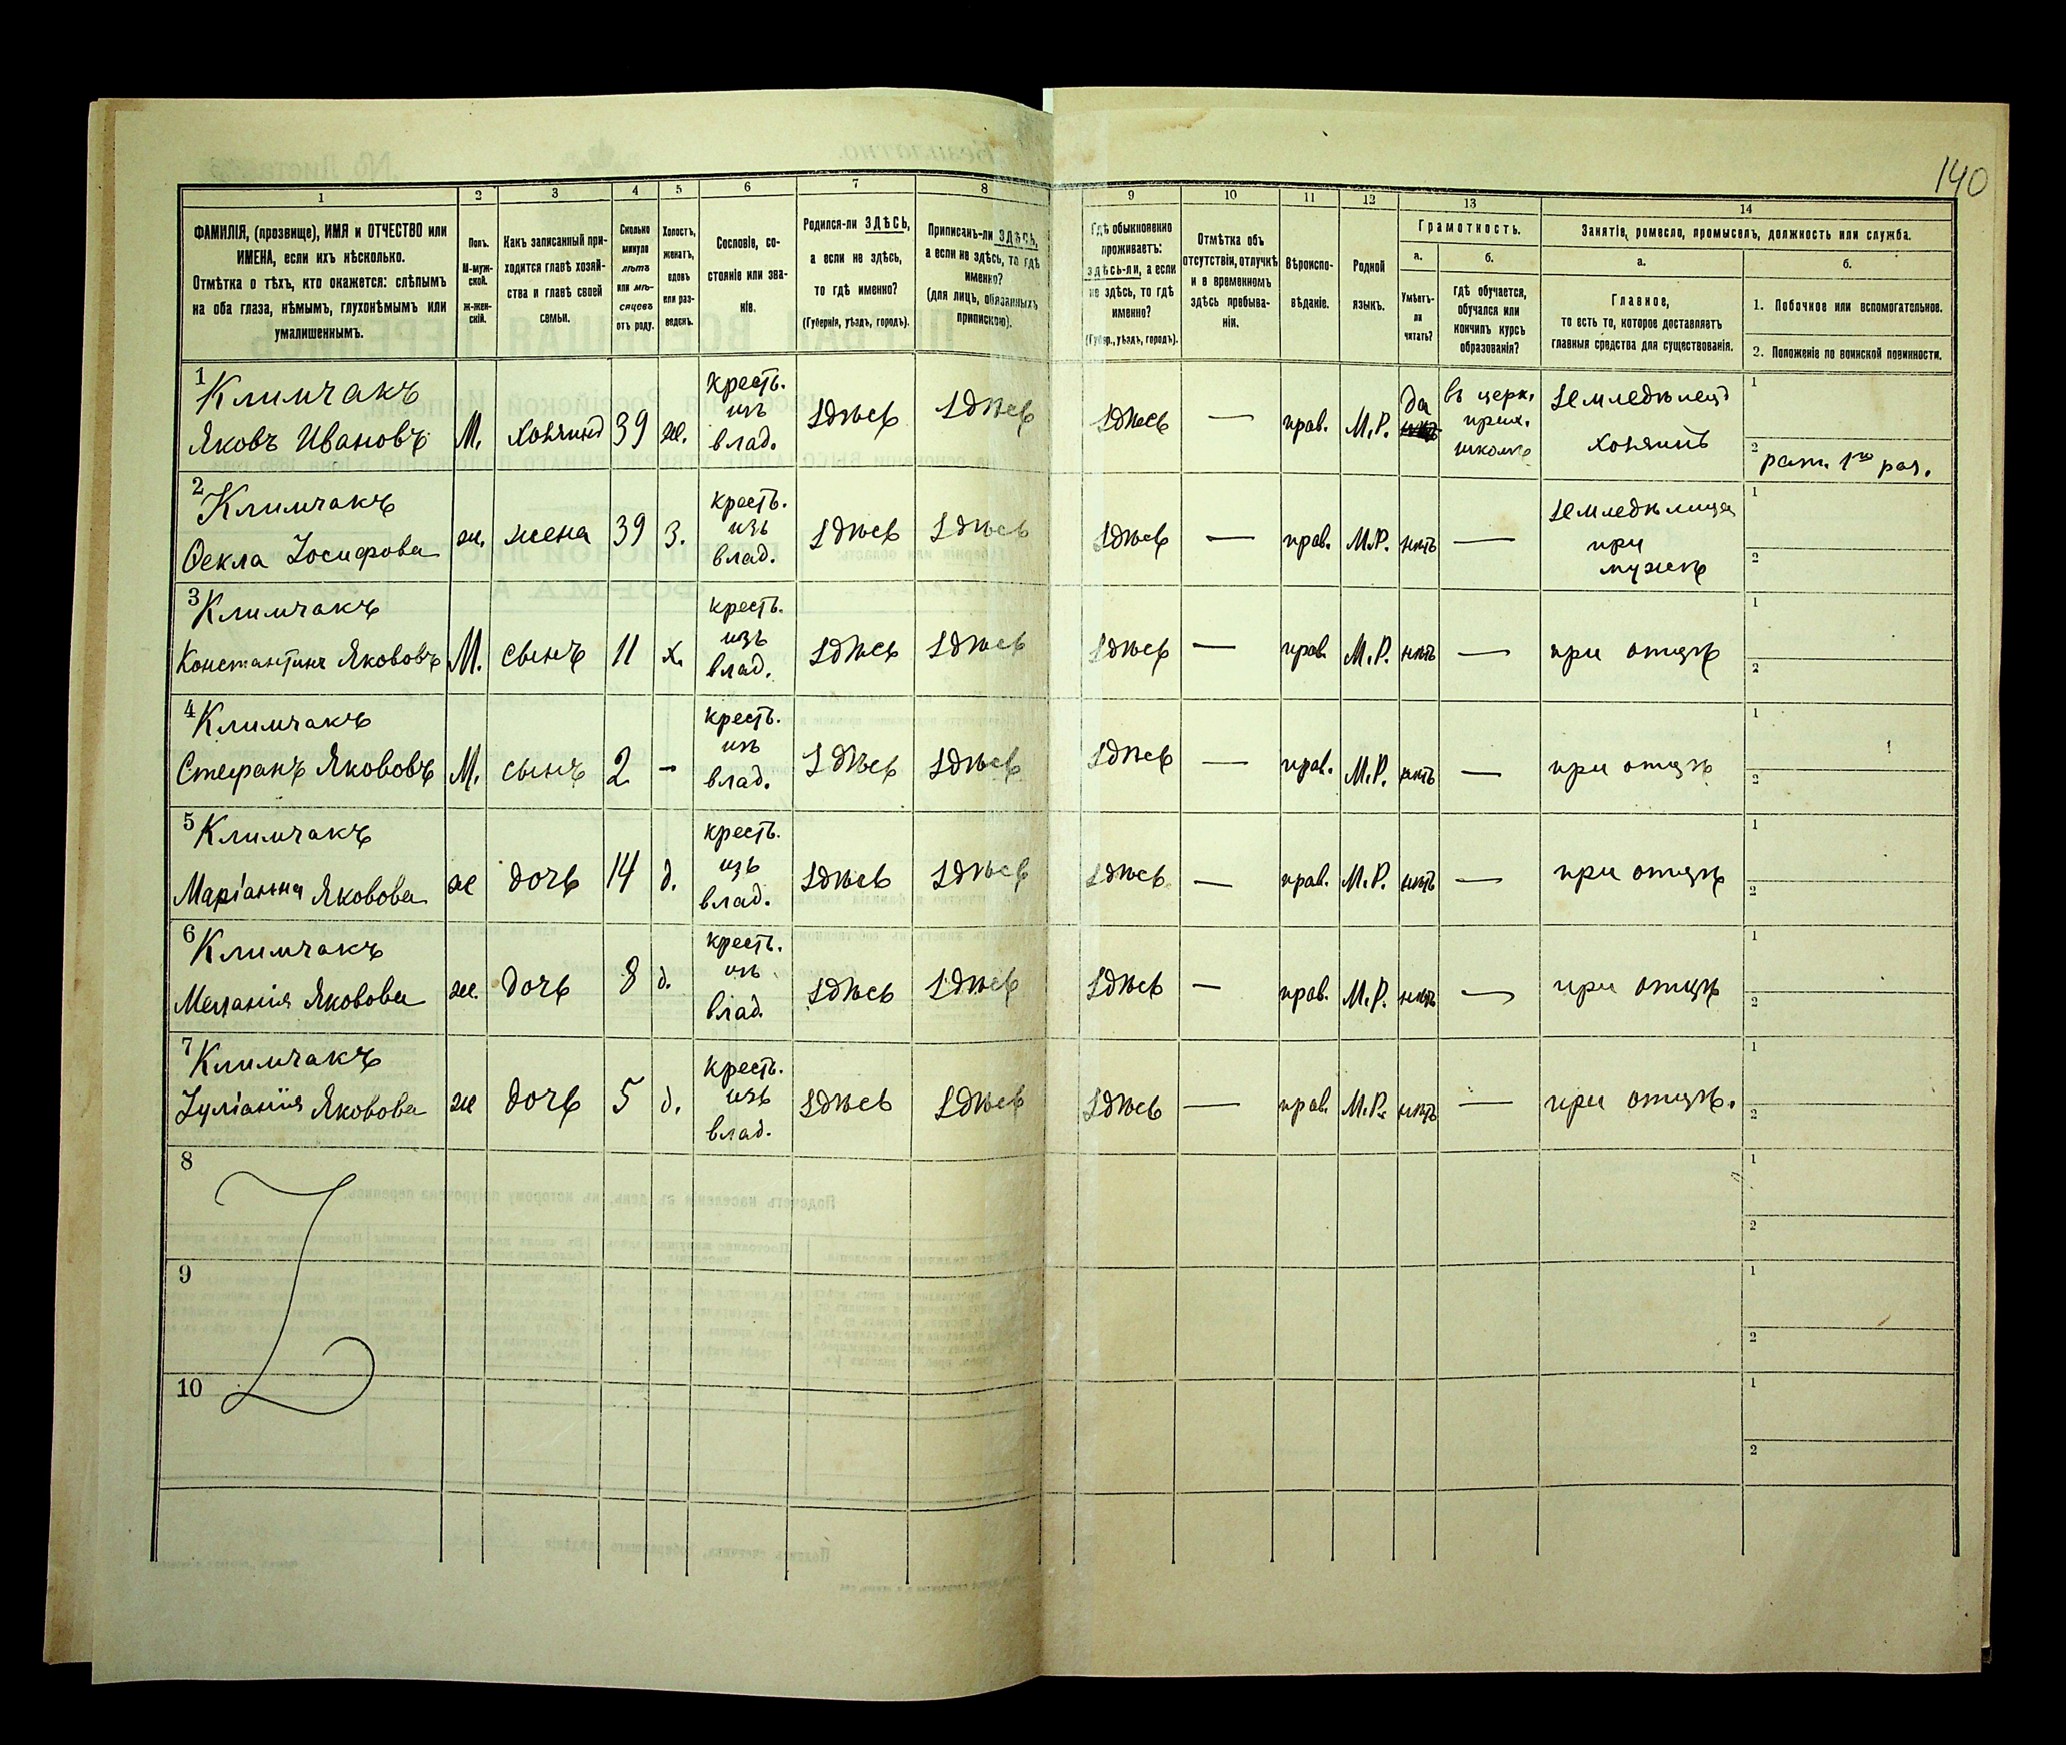 140
1 2 3 4 5 6 7 8 9 10 11 12 13 14
ФАМИЛІЯ, (прозвище), ИМЯ и ОТЧЕСТВО или
ИМЕНА, если ихъ нѣсколько.
Отмѣтка о тѣхъ, кто окажется: слѣпымъ
на оба глаза, нѣмымъ, глухонѣмымъ или
умалишеннымъ.
Полъ.
М-муж-
ской.
ж-жен-
скій.
Какъ записанный при-
ходится главѣ хозяй-
ства и главѣ своей
семьи.
Сколько
минуло
лѣтъ
или мѣ-
сяцевъ
отъ роду.
Холостъ,
женатъ,
вдовъ
или раз-
веденъ.
Сословіе, со-
стояніе или зва-
ніе.
Родился-ли ЗДѢСЬ,
а если не здѣсь,
то гдѣ именно?
(Губернія, уѣздъ, городъ).
Приписанъ-ли ЗДѢСЬ,
а если не здѣсь, то гдѣ
именно?
(для лицъ, обязанныхъ
припискою).
Гдѣ обыкновенно
проживаетъ:
здѣсь-ли, а если
не здѣсь, то гдѣ
именно?
(Губер., уѣздъ, городъ).
Отмѣтка объ
отсутствіи, отлучкѣ
и о временномъ
здѣсь пребыва-
ніи.
Вѣроиспо-
вѣданіе.
Родной
языкъ.
Грамотность.
а.
Умѣетъ-
ли
читать?
б.
гдѣ обучается,
обучался или
кончилъ курсъ
образованія?
Занятіе, ремесло, промыселъ, должность или служба.
а.
Главное,
то есть то, которое доставляетъ
главныя средства для существованія.
б.
1. Побочное или вспомогательное.
2. Положеніе по воинской повинности.
1 Климчакъ
Яковъ Ивановъ М. хозяинъ 39 ж. крестъ. изъ влад. здѣсь здѣсь здѣсь — прав. М.Р. да въ церк. прих. школѣ земледѣлецъ хозяинъ 1
2 рат. 1го раз.
2 Климчакъ
Ѳекла Іосифова ж. жена 39 з. крестъ. изъ влад. здѣсь здѣсь здѣсь — прав. М.Р. нѣтъ — земледѣлица при мужѣ 1
2
3 Климчакъ
Константинъ Якововъ М. сынъ 11 х. крестъ. изъ влад. здѣсь здѣсь здѣсь — прав. М.Р. нѣтъ — при отцѣ 1
2
4 Климчакъ
Стефанъ Якововъ М. сынъ 2 — крестъ. изъ влад. здѣсь здѣсь здѣсь — прав. М.Р. нѣтъ — при отцѣ 1
2
5 Климчакъ
Маріанна Яковова ж дочь 14 д. крестъ. изъ влад. здѣсь здѣсь здѣсь — прав. М.Р. нѣтъ — при отцѣ 1
2
6 Климчакъ
Меланія Яковова ж. дочь 8 д. крестъ. изъ влад. здѣсь здѣсь здѣсь — прав. М.Р. нѣтъ — при отцѣ 1
2
7 Климчакъ
Іуліанія Яковова ж дочь 5 д. крестъ. изъ влад. здѣсь здѣсь здѣсь — прав. М.Р. нѣтъ — при отцѣ. 1
2
8 1
2
9 1
2
10 1
2